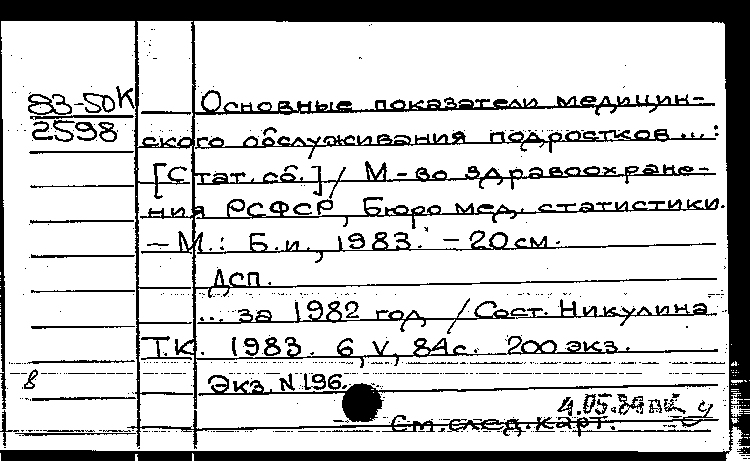 83-50К Основные показатели медицин-
2598 ского обслуживания подростков...:
[Стат. сб.] / М-во здравоохране-
ния РСФСР, Бюро мед. статистики.
— М.: Б.и., 1983. - 20 см.
ДСП.
... за 1982 год / Сост. Никулина
Т.К. 1983. 6, V, 84с. 200 экз.
в Экз. N 196.
4.05.84
См. след. карт.